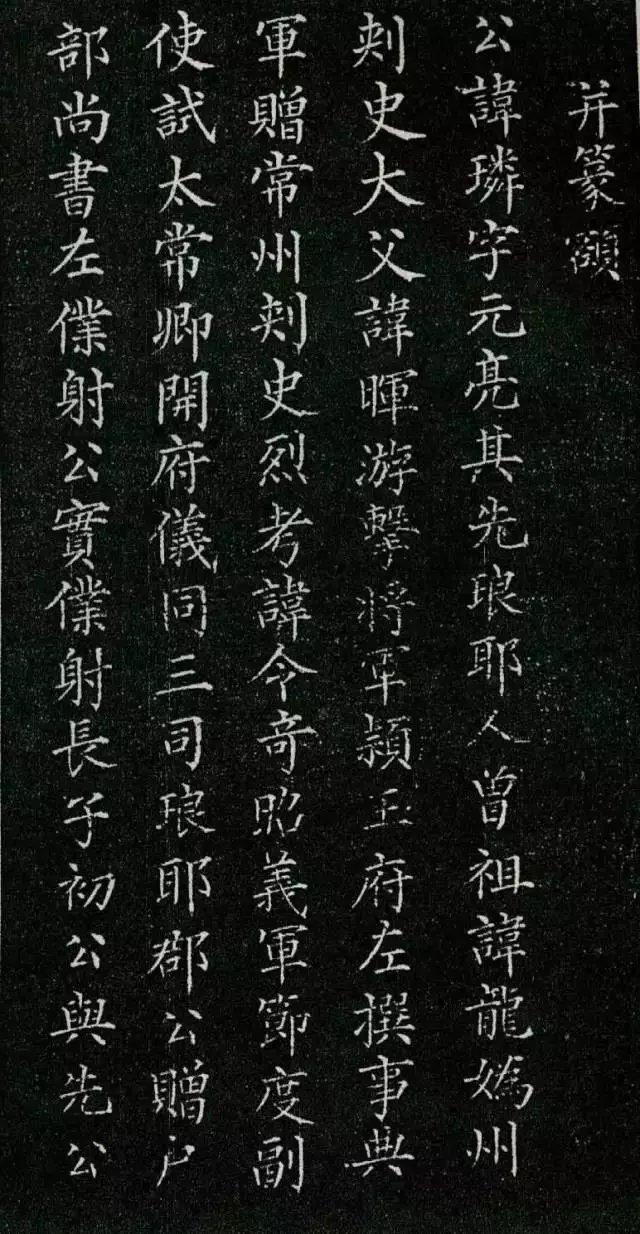 并篆額
公諱璘字元亮其先琅耶人曾祖諱龍媯州
刾史大父諱暉游擊將軍潁王府左撰事典
軍贈常州刾史烈考諱令奇昭義軍節度副
使試太常卿開府儀同三司琅耶郡公贈户
部尚書左僕射公實僕射長子初公與先公